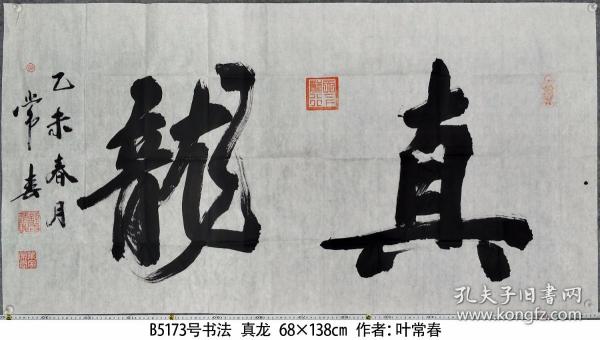 真龍
乙未春月
常春
孔夫子旧书网
www.kongfz.com
B5173号书法 真龙 68×138cm 作者：叶常春